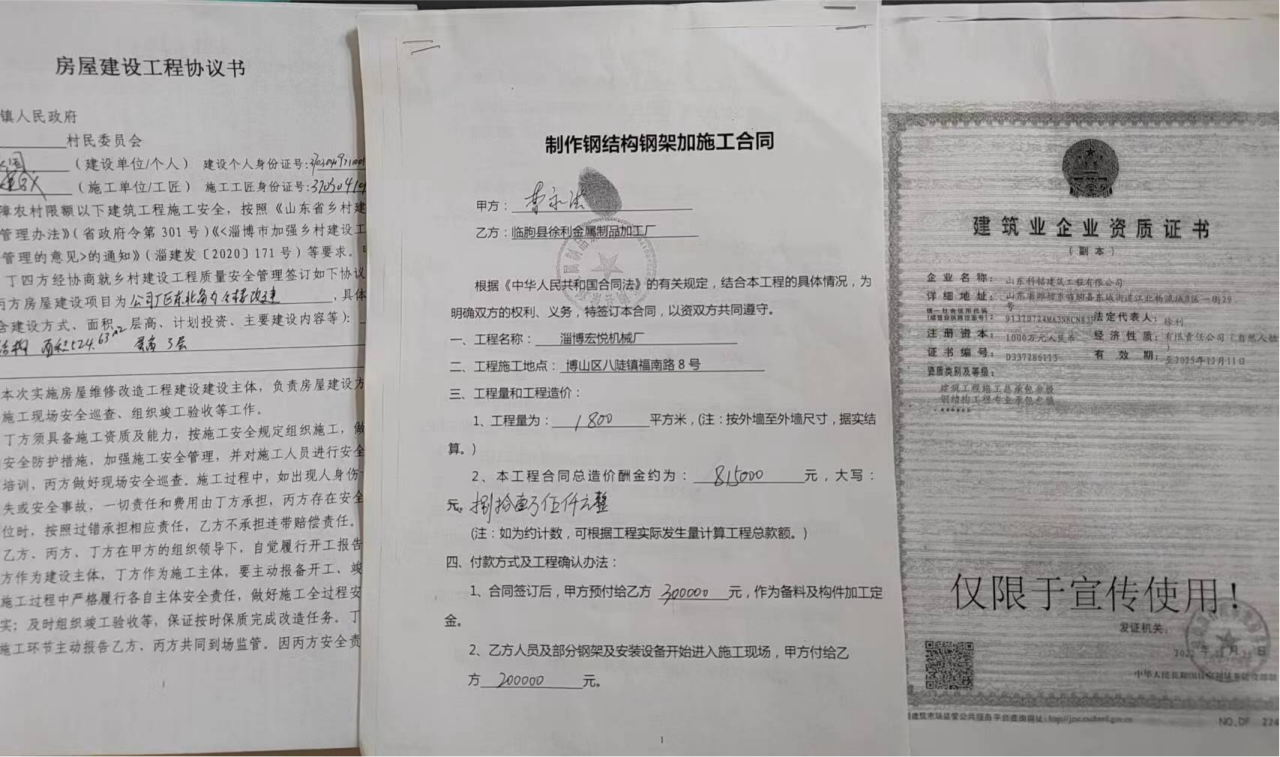 房屋建设工程协议书
镇人民政府
村民委员会
(建设单位/个人) 建设个人身份证号:
(施工单位/工匠) 施工工匠身份证号:
障农村限额以下建筑工程施工安全，按照《山东省乡村建
管理办法》(省政府令第 301 号)《<淄博市加强乡村建设工
管理的意见>的通知》(淄建发〔2020〕171 号)等要求。
丁四方经协商就乡村建设工程质量安全管理签订如下协议
丙方房屋建设项目为 公司厂区东北角 改建 ,具体
含建设方式、面积、层高、计划投资、主要建设内容等):
结构 面积524.63m2 层高 3层
本次实施房屋维修改造工程建设建设主体，负责房屋建设方
施工现场安全巡查、组织竣工验收等工作。
丁方须具备施工资质及能力，按施工安全规定组织施工，做
安全防护措施，加强施工安全管理，并对施工人员进行安全
培训，丙方做好现场安全巡查。施工过程中，如出现人身伤
失或安全事故，一切责任和费用由丁方承担，丙方存在安全
位时，按照过错承担相应责任，乙方不承担连带赔偿责任。
乙方、丙方，丁方在甲方的组织领导下，自觉履行开工报告
方作为建设主体，丁方作为施工主体，要主动报备开工、竣
施工过程中严格履行各自主体安全责任，做好施工全过程安
实；及时组织竣工验收等，保证按时保质完成改造任务。丁
施工环节主动报告乙方、丙方共同到场监管。因丙方安全责
1
制作钢结构钢架加施工合同
甲方：
乙方：临朐县徐利金属制品加工厂
根据《中华人民共和国合同法》的有关规定，结合本工程的具体情况，为
明确双方的权利、义务，特签订本合同，以资双方共同遵守。
一、工程名称： 淄博宏悦机械厂
二、工程施工地点： 博山区八陡镇福南路 8 号
三、工程量和工程造价：
1、工程量为： 1800 平方米，(注：按外墙至外墙尺寸，据实结
算。)
2、本工程合同总造价酬金约为： 815000 元，大写：
元。捌拾壹万伍仟元整
(注：如为约计数，可根据工程实际发生量计算工程总款额。)
四、付款方式及工程确认办法：
1、合同签订后，甲方预付给乙方 300000 元，作为备料及构件加工定
金。
2、乙方人员及部分钢架及安装设备开始进入施工现场，甲方付给乙
方 200000 元。
1
建筑业企业资质证书
(副本)
企业名称： 山东科铭建筑工程有限公司
详细地址： 山东省潍坊市临朐县东城街道江北物流城B区一街19
号
法定代表人： 徐利
注册资本： 1000万元人民币 经济性质： 有限责任公司(自然人独
证书编号： D337286115 有效期： 至2025年12月11日
资质类别及等级：
建筑工程施工总承包叁级
钢结构工程专业承包叁级
仅限于宣传使用！
发证机关：
NO.DF 224